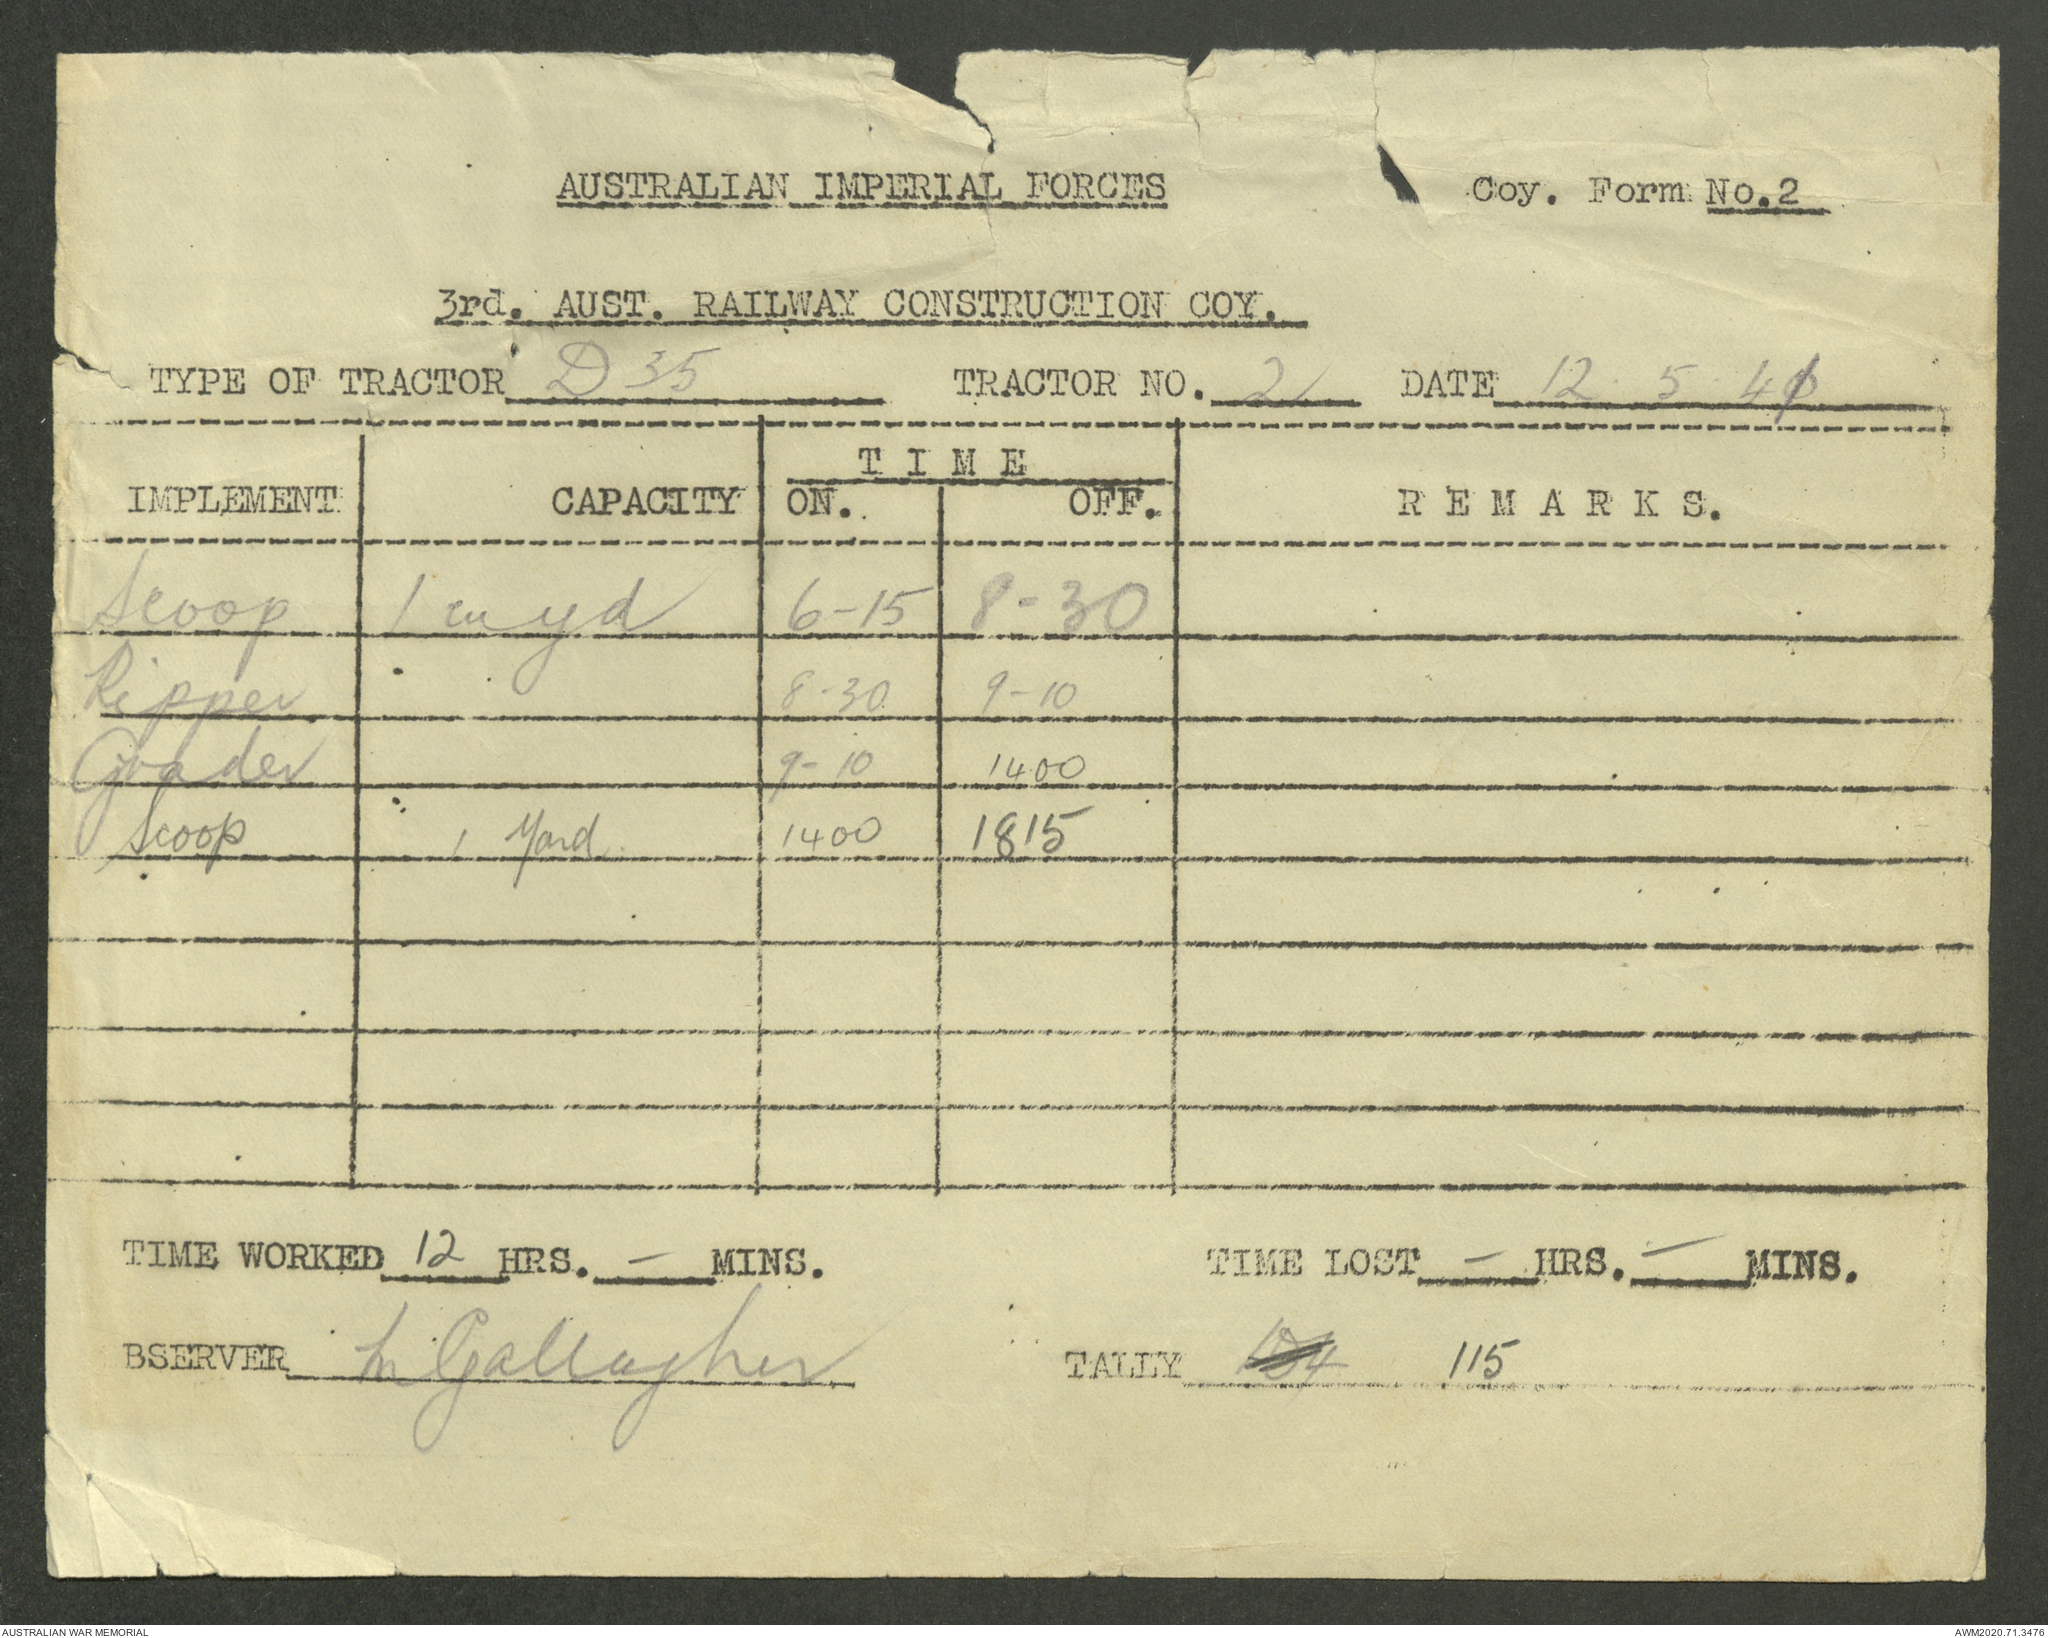 AUSTRALIAN IMPERIAL FORCES Coy. Form No.2
3rd. AUST. RAILWAY CONSTRUCTION COY.
TYPE OF TRACTOR D 35 TRACTOR NO. 2 DATE 12 . 5 . 41
TIME
IMPLEMENT CAPACITY ON. OFF. REMARKS.
Scoop 1 cu yd 6-15 8-30
Ripper 8-30 9-10
Grader 9-10 1400
Scoop 1 Yard. 1400 1815
TIME WORKED 12 HRS. - MINS. TIME LOST - HRS. - MINS.
BSERVER Gallagher TALLY 115
AUSTRALIAN WAR MEMORIAL AWM2020.71.3476